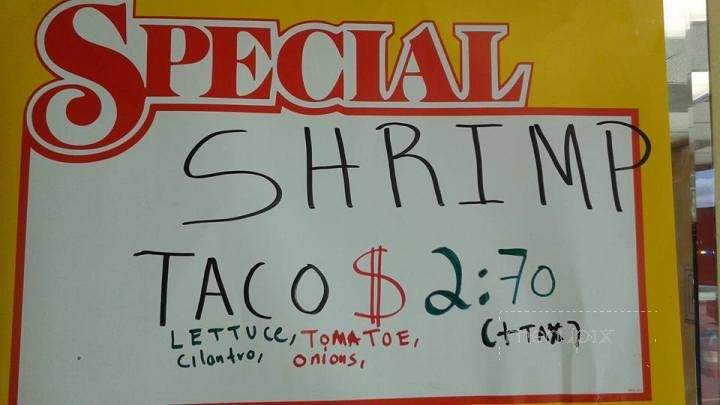 SPECIAL
SHRIMP
TACO $ 2:70
LETTUCE, TOMATOE, (+TAX)
cilantro, onions,